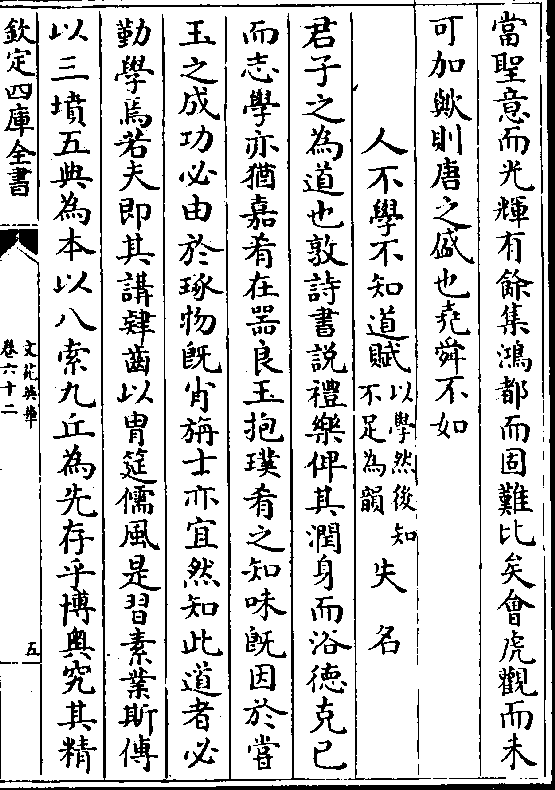 當聖意而光輝有餘集鴻都而固難比矣會虎觀而未
可加歟則唐之盛也堯舜不如
人不學不知道賦以學然後知不足為韻 失名
君子之為道也敦詩書説禮樂俾其潤身而浴德克已
而志學亦猶嘉肴在器良玉抱璞肴之知味既因於嘗
玉之成功必由於琢物既尚旃士亦宜然知此道者必
勤學焉若夫即其講肄齒以胄筵儒風是習素業斯傳
以三墳五典為本以八索九丘為先存乎博奥究其精
欽定四庫全書
文苑英華
卷六十二
五